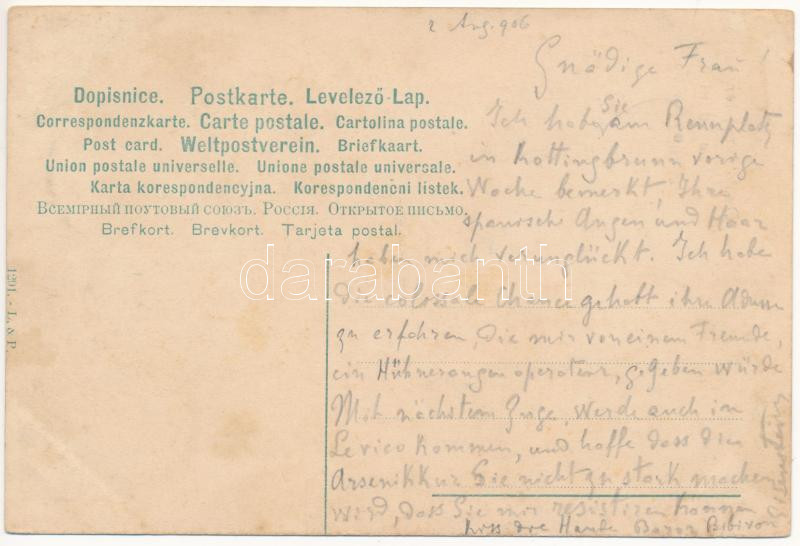 2 Aug. 906
Gnädige Frau!
Dopisnice. Postkarte. Levelező-Lap.
Correspondenzkarte. Carte postale. Cartolina postale.
Post card. Weltpostverein. Briefkaart.
Union postale universelle. Unione postale universale.
Karta korespondencyjna. Korespondenčni listek.
Всемірный поутовый союзъ. Россія. Открытое письмо.
Brefkort. Brevkort. Tarjeta postal.
Ich habe Sie am Rennplatz
in Kottingbrunn vorige
Woche bemerkt, Ihre
spanische Augen und Haar
haben mich verunglückt. Ich habe
die colossale Chance gehabt ihre
zu erfahren, die mir von einem Freunde,
ein Hühneraugenoperateur, gegeben würde
Mit nächstem Zuge, werde auch in
Levico kommen, und hoffe dass die
Arsenikkur Sie nicht zu stark machen
wird, dass Sie mir resistiren können
Kiss die Hande Baron Bibi von
1201. - L. & P.
darabanth